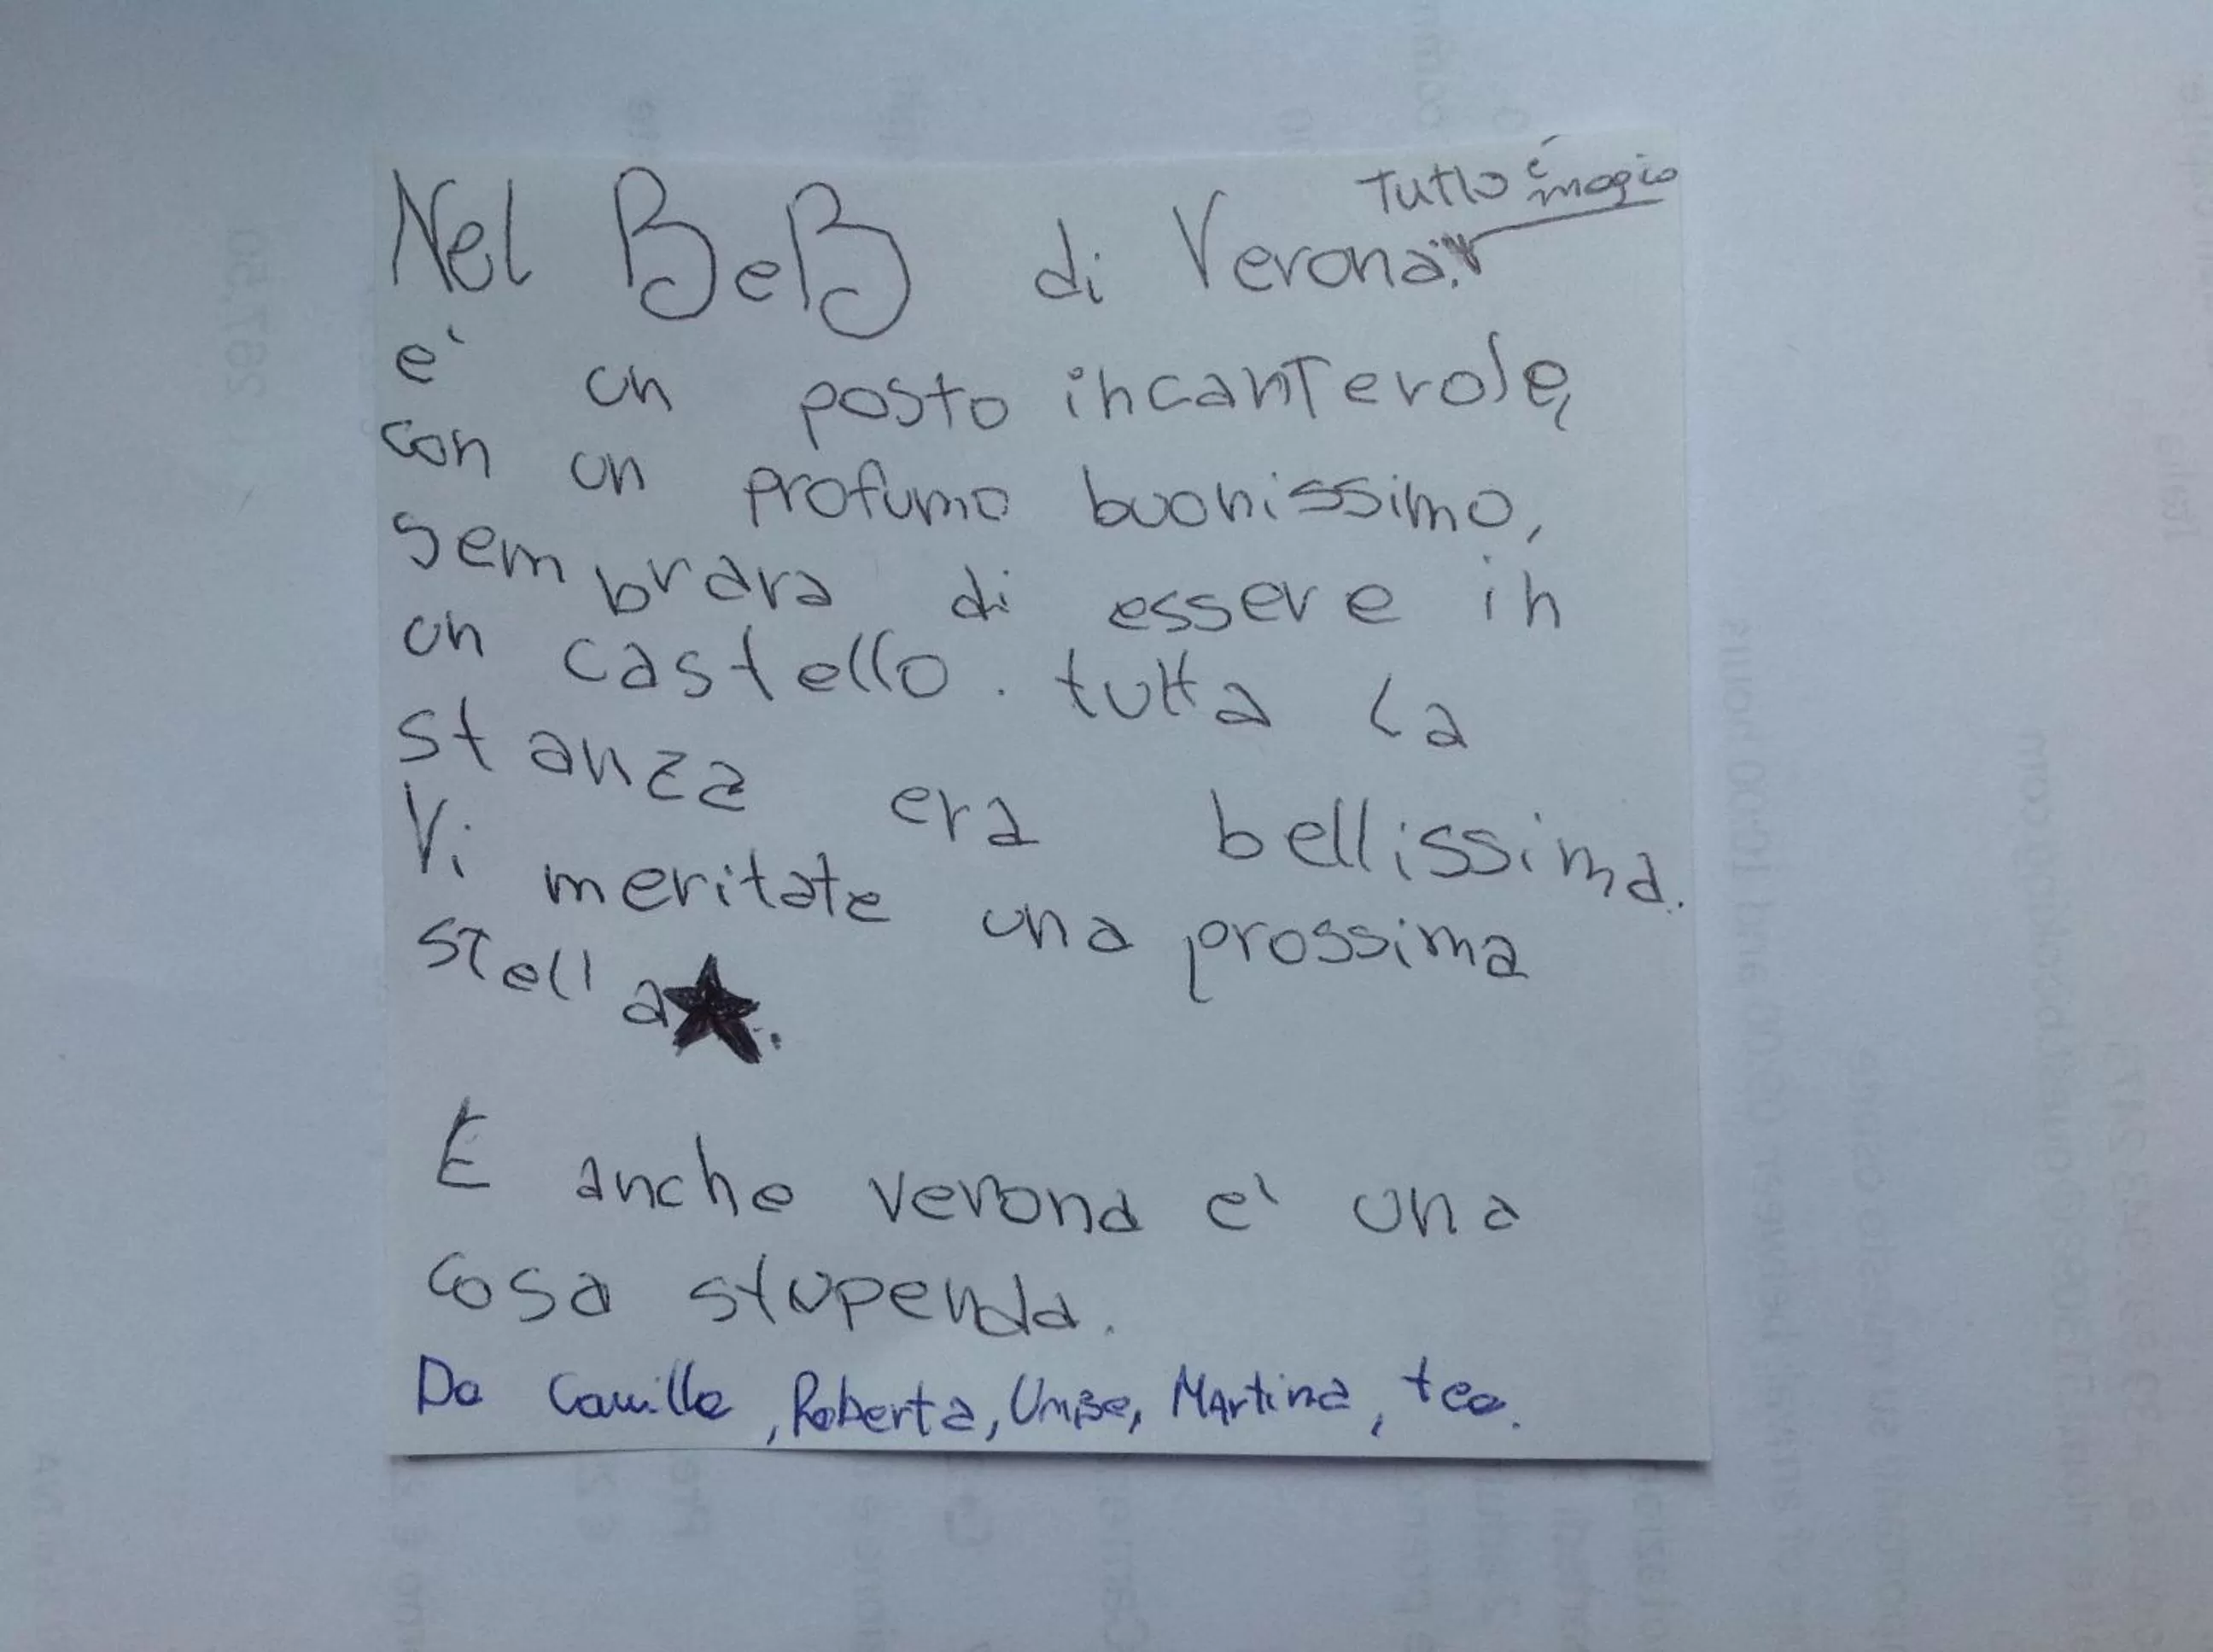 Tutto è magico
Nel BeB di Verona.
e' un posto incanterole,
con un profumo buonissimo,
sembrara di essere in
un castello. tutta la
stanza era bellissima.
Vi meritate una prossima
stella★.
E anche verona e' una
cosa stupenda.
Da Camilla, Roberta, Umbe, Martina, teo.
267,50